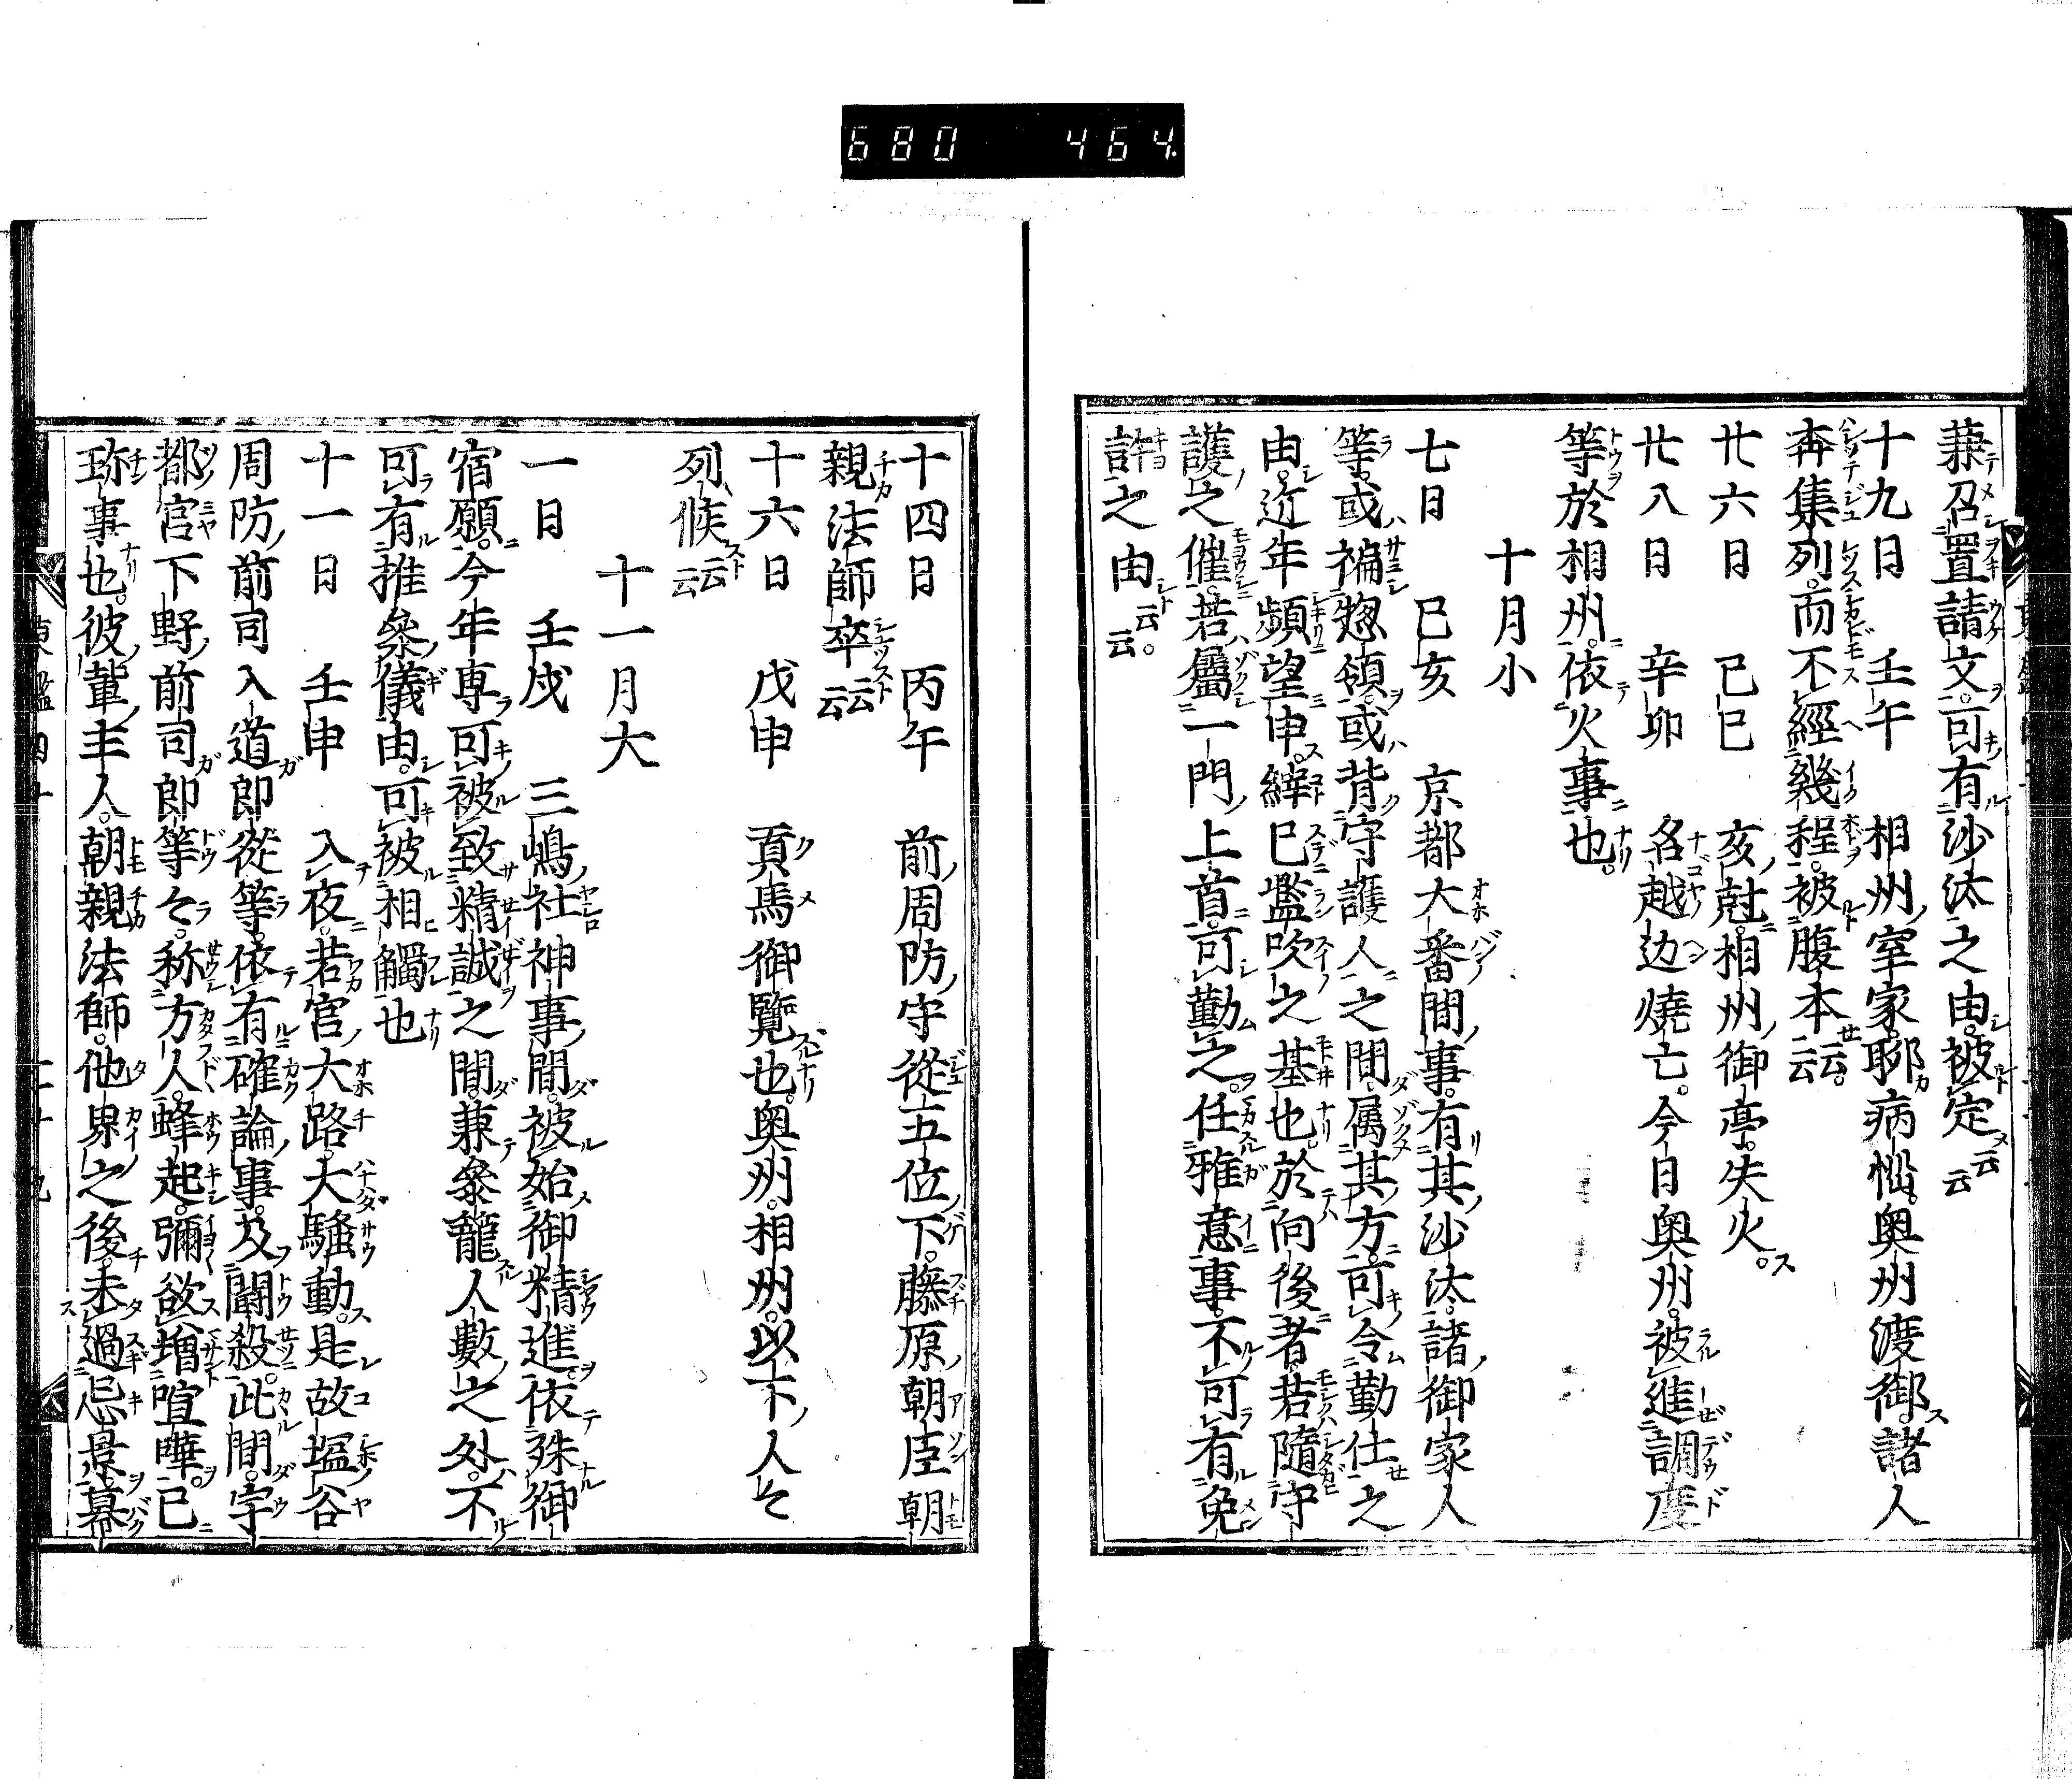 680 464.
兼召置請文。可有沙汰之由。被定云云
十九日 壬午 相州室家。聊病悩。奥州渡御。諸人
奔集列。而不經幾程。被腹本云云。
廿六日 己巳 亥尅。相州御亭。失火。
廿八日 辛卯 名越边燒亡。今日奥州。被進調度
等於相州。依火事也。
十月小
七日 己亥 京都大番間事。有其沙汰。諸御家人
等。或褊惣領。或背守護人之間。属其方。可令勤仕之
由。近年頻望申。縡已濫吹之基也。於向後者。若隨守
護之催。若屬一門上首。可勤之。任雅意事。不可有免
許之由云云。
十四日 丙午 前周防守從五位下。藤原朝臣朝
親法師卒云云
十六日 戊申 貢馬御覽也。奥州。相州。以下人々
列候云云
十一月大
一日 壬戌 三嶋社神事間。被始御精進。依殊御
宿願。今年専可被致精誠之間。兼參籠人數之外。不
可有推參儀由。可被相觸也
十一日 壬申 入夜。若宮大路。大騒動。是故塩谷
周防前司入道郎從等。依有確論事。及鬪殺。此間。宇
都宮下野前司郎等々。称方人。蜂起。彌欲増喧嘩。已
珎事也。彼輩主人。朝親法師。他界之後。未過忌景。幕